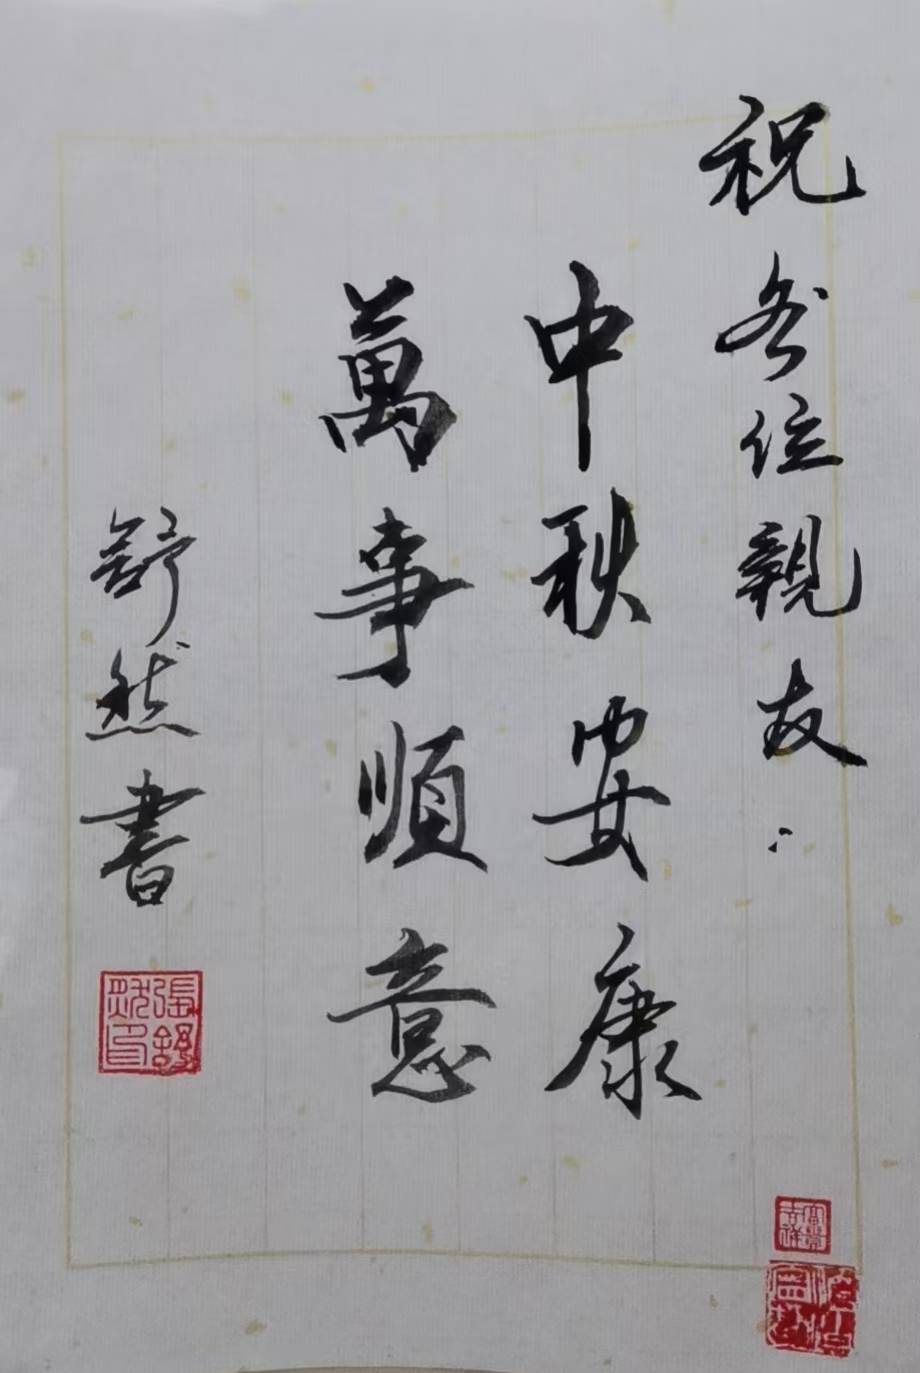 祝各位親友：
中秋安康
萬事順意
舒然書
張舒然印